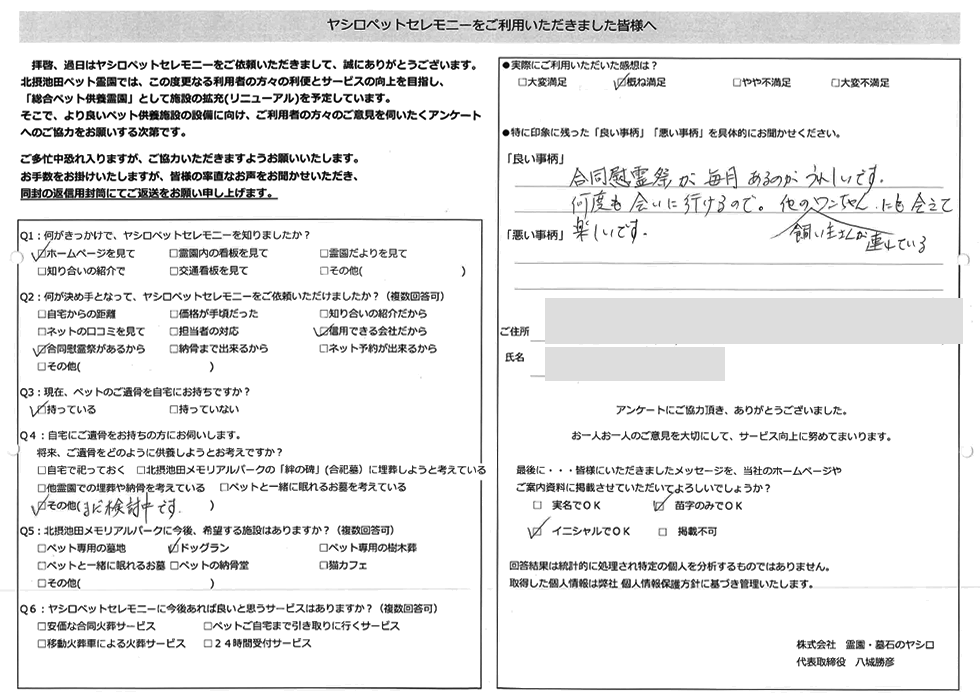 ヤシロペットセレモニーをご利用いただきました皆様へ
拝啓、過日はヤシロペットセレモニーをご依頼いただきまして、誠にありがとうございます。
北摂池田ペット霊園では、この度更なる利用者の方々の利便とサービスの向上を目指し、
「総合ペット供養霊園」として施設の拡充(リニューアル)を予定しています。
そこで、より良いペット供養施設の設備に向け、ご利用者の方々のご意見を伺いたくアンケート
へのご協力をお願いする次第です。
ご多忙中恐れ入りますが、ご協力いただきますようお願いいたします。
お手数をお掛けいたしますが、皆様の率直なお声をお聞かせいただき、
同封の返信用封筒にてご返送をお願い申し上げます。
Q1：何がきっかけで、ヤシロペットセレモニーを知りましたか？
☑ホームページを見て □霊園内の看板を見て □霊園だよりを見て
□知り合いの紹介で □交通看板を見て □その他( )
Q2：何が決め手となって、ヤシロペットセレモニーをご依頼いただけましたか？（複数回答可）
□自宅からの距離 □価格が手頃だった □知り合いの紹介だから
□ネットの口コミを見て □担当者の対応 ☑信用できる会社だから
☑合同慰霊祭があるから □納骨まで出来るから □ネット予約が出来るから
□その他( )
Q3：現在、ペットのご遺骨を自宅にお持ちですか？
☑持っている □持っていない
Q4：自宅にご遺骨をお持ちの方にお伺いします。
将来、ご遺骨をどのように供養しようとお考えですか？
□自宅で祀っておく □北摂池田メモリアルパークの「絆の碑」(合祀墓）に埋葬しようと考えている
□他霊園での埋葬や納骨を考えている □ペットと一緒に眠れるお墓を考えている
☑その他(まだ検討中です. )
Q5：北摂池田メモリアルパークに今後、希望する施設はありますか？（複数回答可）
□ペット専用の墓地 ☑ドッグラン □ペット専用の樹木葬
□ペットと一緒に眠れるお墓 □ペットの納骨堂 □猫カフェ
□その他( )
Q6：ヤシロペットセレモニーに今後あれば良いと思うサービスはありますか？（複数回答可）
□安価な合同火葬サービス □ペットご自宅まで引き取りに行くサービス
□移動火葬車による火葬サービス □２４時間受付サービス
●実際にご利用いただいた感想は？
□大変満足 ☑概ね満足 □やや不満足 □大変不満足
●特に印象に残った「良い事柄」「悪い事柄」を具体的にお聞かせください。
「良い事柄」
合同慰霊祭が毎月あるのがうれしいです.
何度も会いに行けるので。他のワンちゃん.にも会えて
飼い主さんが連れている
「悪い事柄」 楽しいです.
ご住所
氏名
アンケートにご協力頂き、ありがとうございました。
お一人お一人のご意見を大切にして、サービス向上に努めてまいります。
最後に・・・皆様にいただきましたメッセージを、当社のホームページや
ご案内資料に掲載させていただいてよろしいでしょうか？
□ 実名でＯＫ ☑ 苗字のみでＯＫ
☑ イニシャルでＯＫ □ 掲載不可
回答結果は統計的に処理され特定の個人を分析するものではありません。
取得した個人情報は弊社 個人情報保護方針に基づき管理いたします。
株式会社 霊園・墓石のヤシロ
代表取締役 八城勝彦